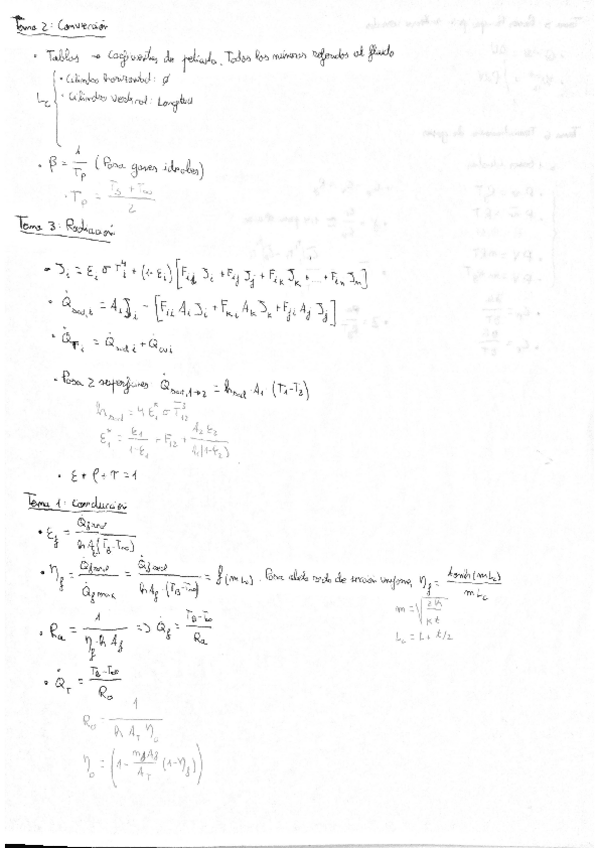 Tema 2: Convección
• Tablas → Coeficientes de película. Todos los números referidos al fluido
Lc { • Cilindro horizontal: Ø
• Cilindro vertical: Longitud
• β = 1/Tp (Para gases ideales)
• Tp = (Ts + T∞)/2
Tema 3: Radiación
• Ji = εi σ Ti⁴ + (1-εi) [Fii Ji + Fij Jj + Fik Jk + ... + Fin Jn]
• Q̇rad,i = Ai Ji - [Fii Ai Ji + Fki Ak Jk + Fji Aj Jj]
• Q̇Ti = Q̇rad i + Q̇cv i
• Para 2 superficies Q̇rad,1→2 = hrad · A1 (T1-T2)
hrad = 4 ε1* σ T̄12³
• ε + ρ + τ = 1
Tema 1: Conducción
• εf = Q̇f real / (h Af (TB-T∞))
• ηf = Q̇f real / Q̇f max = Q̇f real / (h Af · (TB-T∞)) = f(m Lc). Para aleta recta de sección uniforme, ηf = tanh(m Lc) / (m Lc)
m = √(2h / (k t))
Lc = L + t/2
• Ra = 1 / (ηf · h Af) => Q̇f = (TB-T∞) / Ra
• Q̇T = (TB-T∞) / Ro
Ro = 1 / (h AT ηo)
ηo = (1 - (nf Af / AT) (1-ηf))